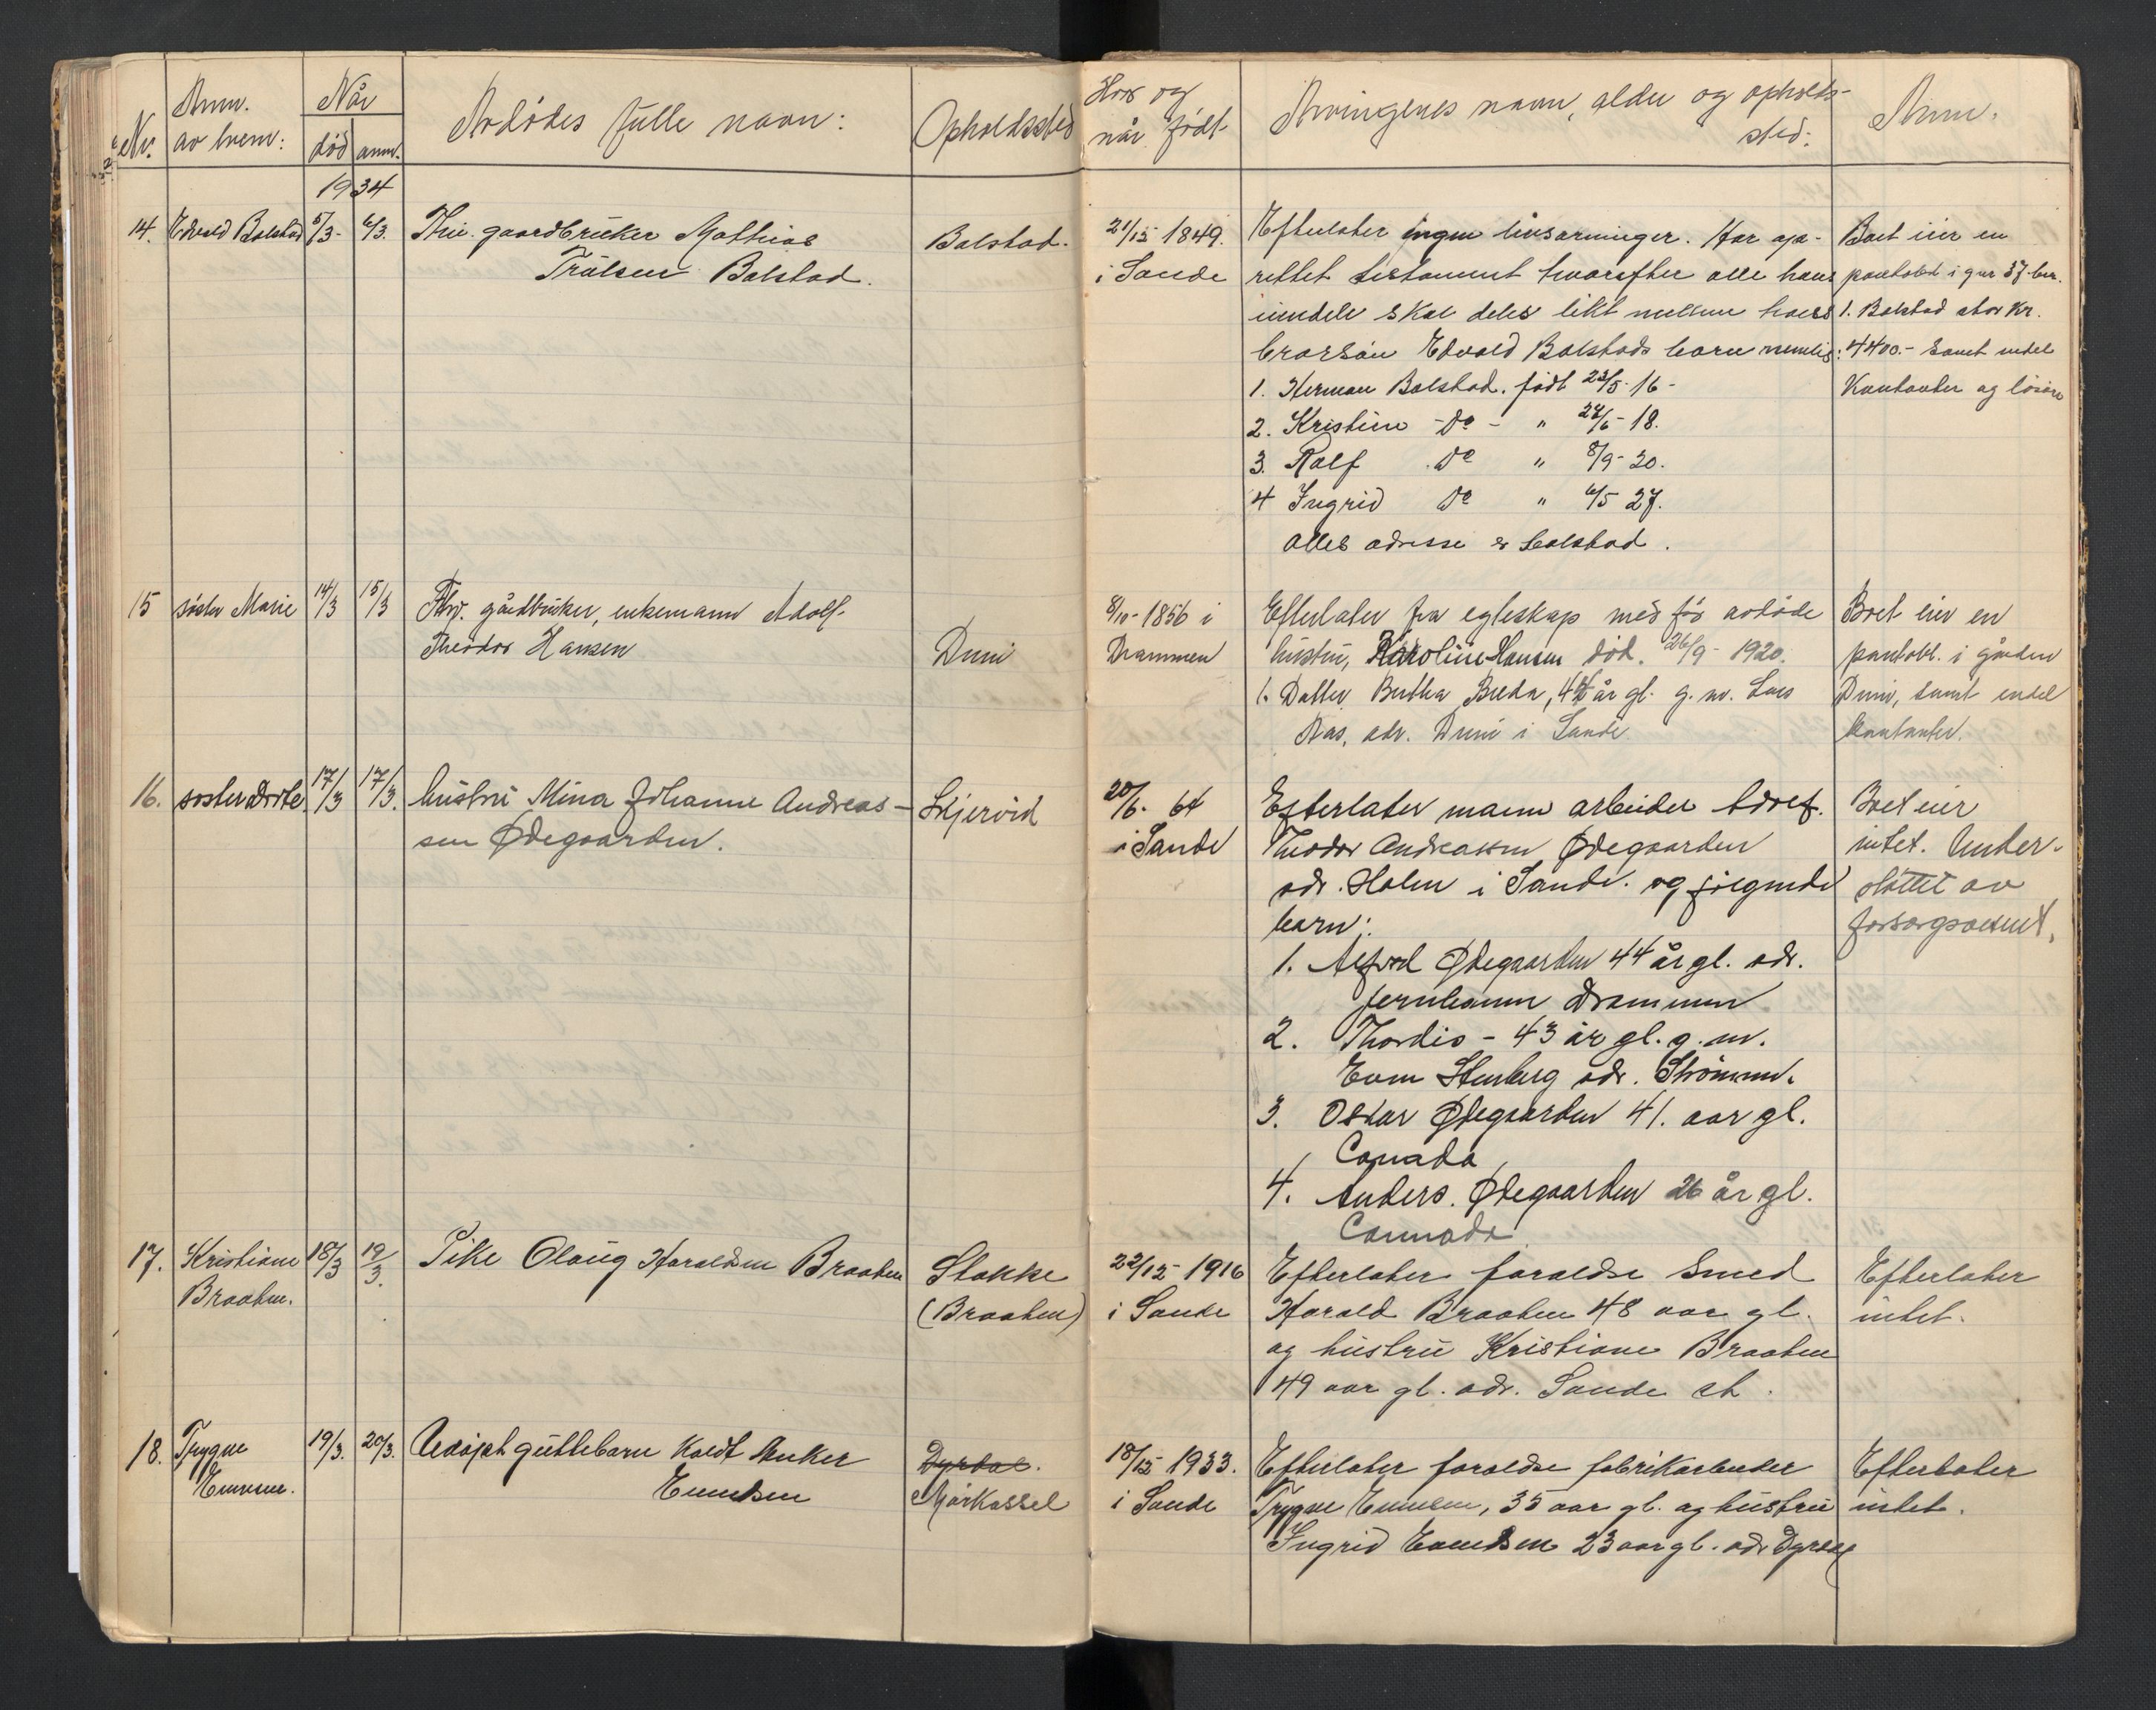 Nr.
Anm.
av hvem:
Når
død
anm.
Avdødes fulle navn:
Opholdssted
Hvor og
når født
Arvingenes navn, alder og opholds-
sted:
Anm.
1934
14. Edvald Bolstad 5/3- 6/3. Fhv. gaardbruker Mathias
Trulsen Bolstad.
Bolstad.
21/12 1849.
i Sande
Efterlater ingen livsarvinger. Har op-
rettet testament hvorefter alle hans
eiendele skal deles likt mellem hans
brorsøn Edvald Bolstads barn nemlig:
1. Herman Bolstad. født 23/5-16-
2. Kristine -Do- " 27/6-18.
3. Rolf Do " 8/9-20.
4 Ingrid Do " 6/5 27.
Alles adresse er Bolstad.
Boet eier en
pantobl i gnr 37 bnr.
1. Bolstad stor Kr.
4400.- samt endel
Kontanter og løsøre
15 søster Marie 14/3 15/3 Fhv. gårdbruker, enkemann Adolf
Theodor Hansen
Duni
8/10-1856 i
Drammen
Efterlater fra egteskap med før avdøde
hustru, Karoline Hansen død. 26/9-1920.
1. Datter Bertha Breda, 44 år gl. g. m. Lars
Aas, adr. Duni i Sande.
Boet eier en
pantobl. i gården
Duni, samt endel
kontanter.
16. søster Dorte. 17/3 17/3. hustru Mina Johanne Andreas-
sen Ødegaarden.
Skjervid
20/6. 64
i Sande
Efterlater mann arbeider Adolf.
Theodor Andreassen Ødegaarden
adr. Holm i Sande. og følgende
barn:
1. Alfred Ødegaarden 44 år gl. adr.
Jernbanen Drammen
2. Thordis - 43 år gl. g. m.
Even Stenberg adr. Strømm.
3. Oskar Ødegaarden 41. aar gl.
Canada
4. Anders. Ødegaarden 26 år gl.
Cannada
Boet eier
intet. Under-
støttet av
forsorgsvesenet.
17. Kristiane
Braaten.
18/3 19/3.
Pike Olaug Haraldsen Braaten
Stokke
(Braaten)
22/12 1916
i Sande
Efterlater foreldre Smed
Harald Braaten 48 aar gl.
og hustru Kristiane Braaten
49 aar gl. adr. Sande st.
Efterlater
intet.
18. Trygve
Evensen.
19/3. 20/3.
Uedøpt guttebarn kaldt Anker
Evensen
Dyrdal.
Mørkassel
18/12 1933.
i Sande
Efterlater foreldre fabrikarbeider
Trygve Evensen, 35 aar gl. og hustru
Ingrid Evensen 23 aar gl. adr Dyrdal
Efterlater
intet.